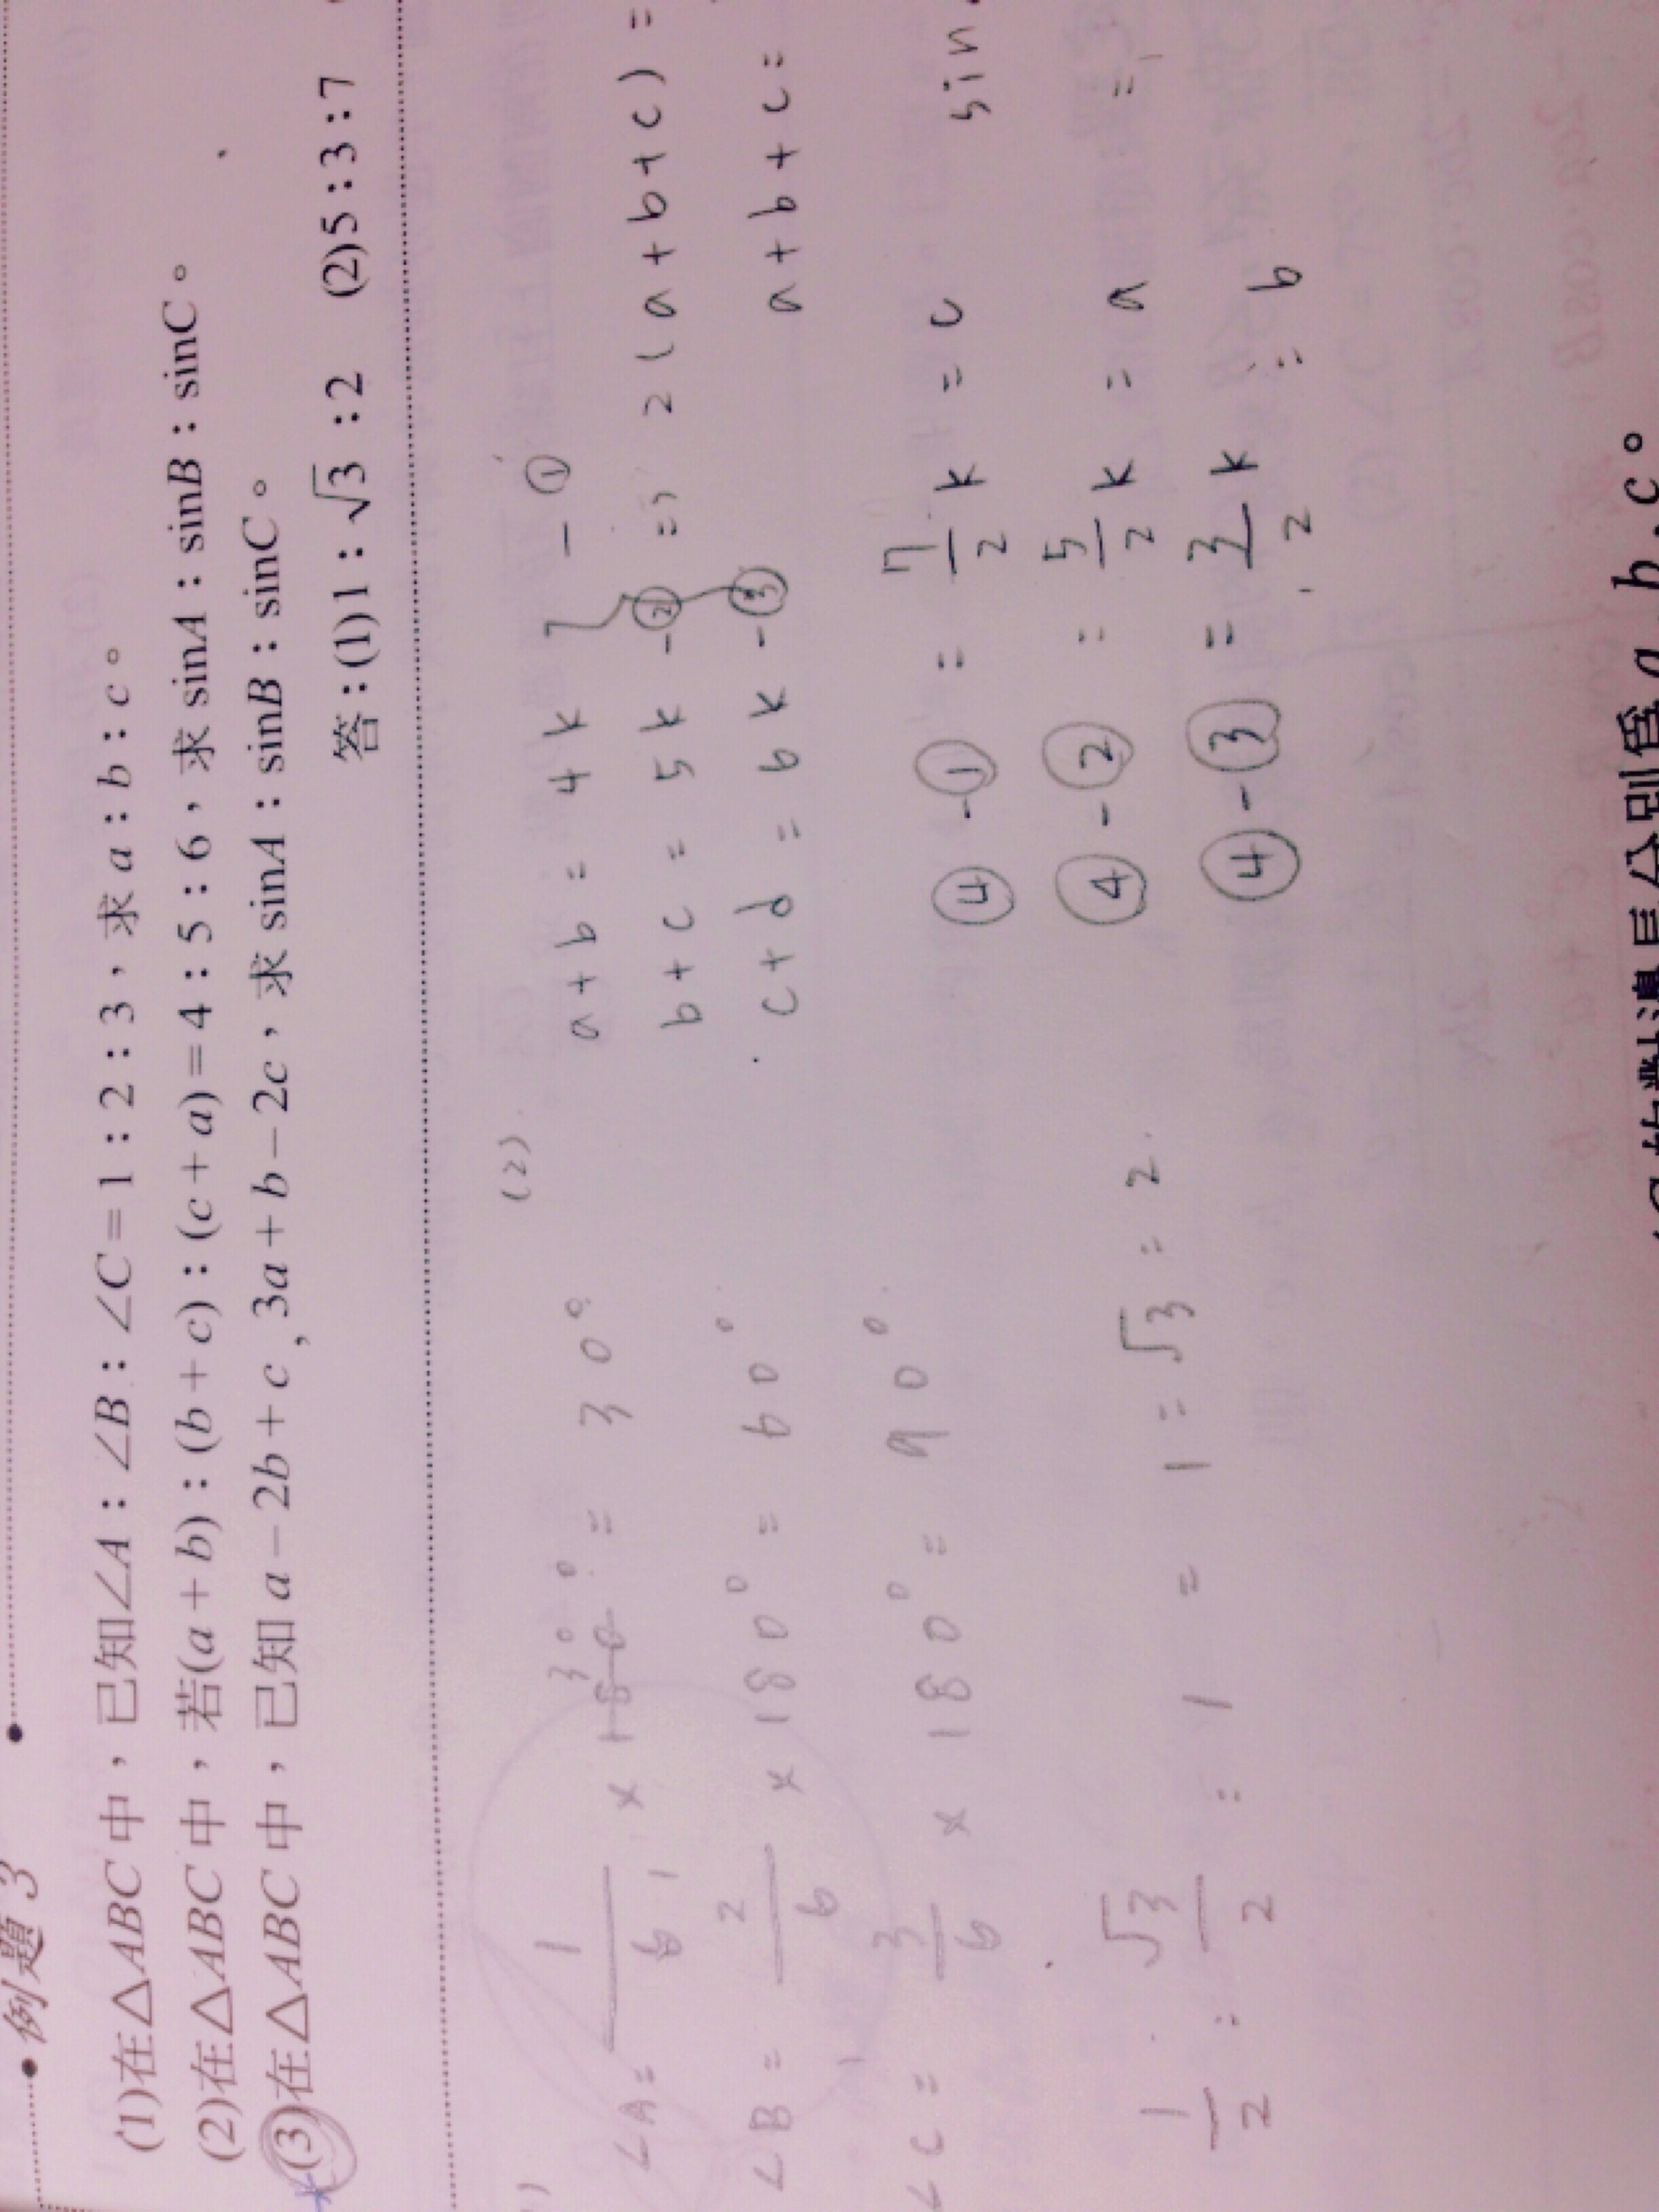 例題3
(1)在△ABC中，已知∠A：∠B：∠C＝1：2：3，求a：b：c。
(2)在△ABC中，若(a＋b)：(b＋c)：(c＋a)＝4：5：6，求sinA：sinB：sinC。
(3)在△ABC中，已知a－2b＋c，3a＋b－2c，求sinA：sinB：sinC。
答：(1)1：√3：2 (2)5：3：7
∠A = 1/6 × 180° = 30°
30
1
∠B = 2/6 × 180° = 60°
∠C = 3/6 × 180° = 90°
1/2 : √3/2 : 1 = 1 : √3 : 2
(2)
a + b = 4k - ①
b + c = 5k - ②
c + d = 6k - ③
=> 2(a+b+c) =
a + b + c =
④ - ① = 7/2 k = c
④ - ② = 5/2 k = a
④ - ③ = 3/2 k = b
sin
=
a, b, c。